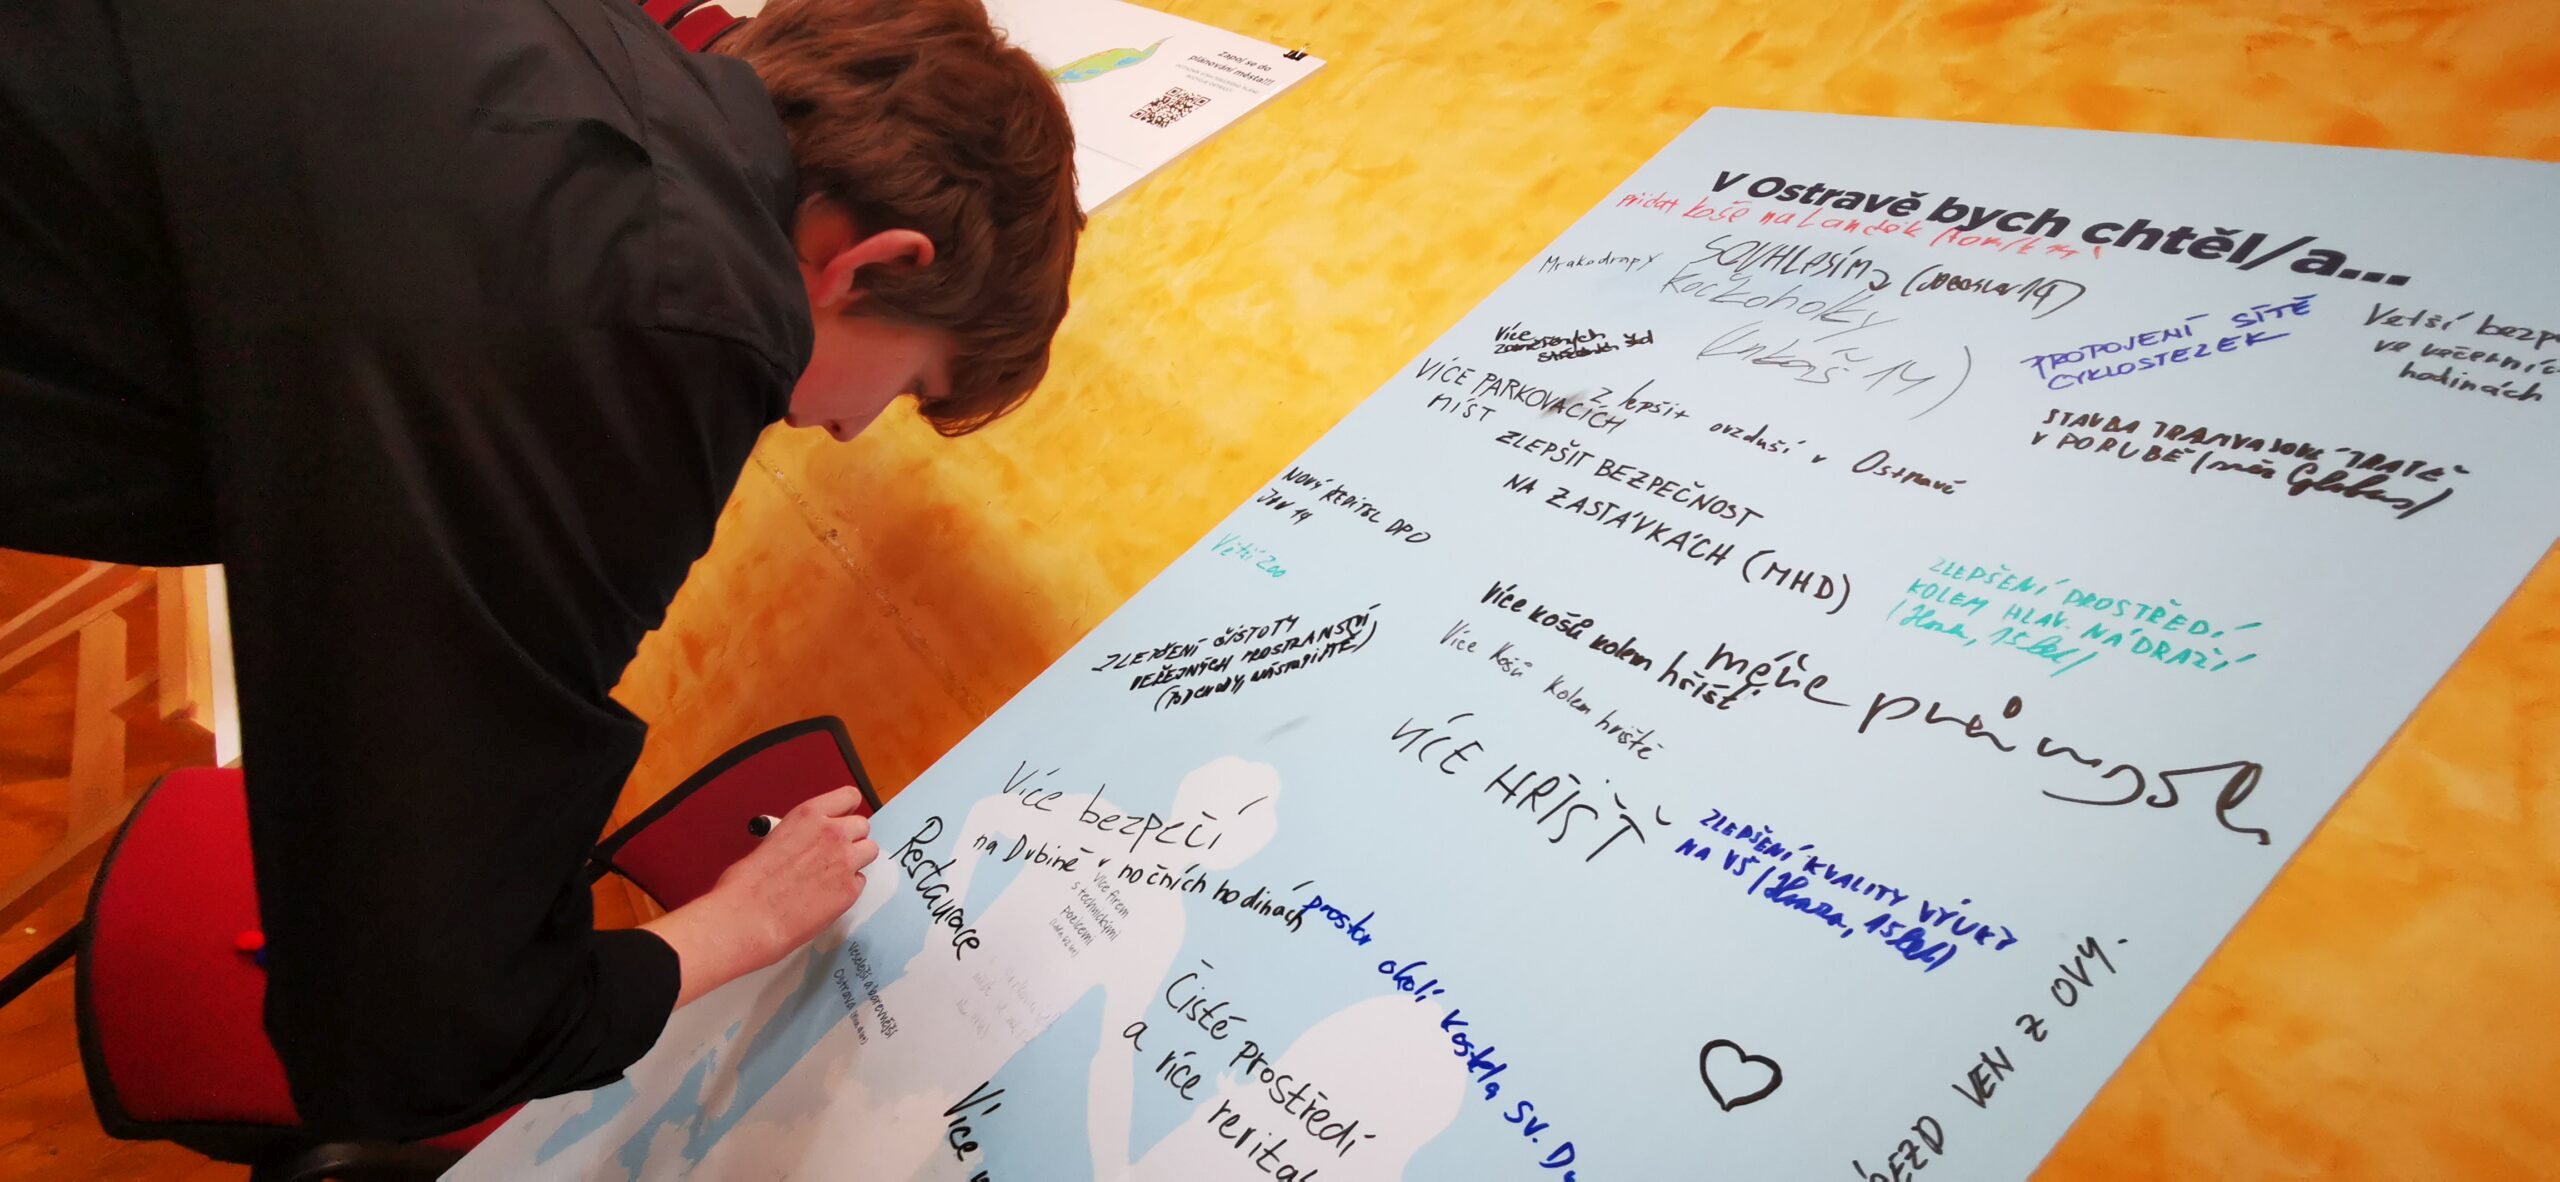 Zapoj se do
plánování města!!!
V Ostravě bych chtěl/a...
přidat koše na Landek
Mrakodrapy
SOUHLASÍM
kočkoholky
(Lukáš 14)
PROPOJENÍ SÍTĚ
CYKLOSTEZEK
Vetší
ve
hodinách
Více
VÍCE PARKOVACÍCH
MÍST
Zlepšit ovzduší v Ostravě
STAVBA TRAMVAJOVÉ TRATĚ
V PORUBĚ (směr Globus)
ZLEPŠIT BEZPEČNOST
NA ZASTÁVKÁCH (MHD)
NOVÝ ŘEDITEL DPO
JAN 19
Větší Zoo
ZLEPŠENÍ PROSTŘEDÍ
KOLEM HLAV. NÁDRAŽÍ
(Honza, 15 let)
ZLEPŠENÍ ČISTOTY
VEŘEJNÝCH PROSTRANSTVÍ
Více košů kolem hřišť
Více košů kolem hřiště
méňe průmyslu
VÍCE HŘIŠŤ
ZLEPŠENÍ KVALITY VÝUKY
NA VŠ (Honza, 15 let)
Více bezpečí
na Dubině v nočních hodinách
Restaurace
Více firem
s technickými
pozicemi
prostor okolí kostela sv.
Veselejší a barevnější
Ostrava
Čisté prostředí
a více
Více
VEN Z OVY.